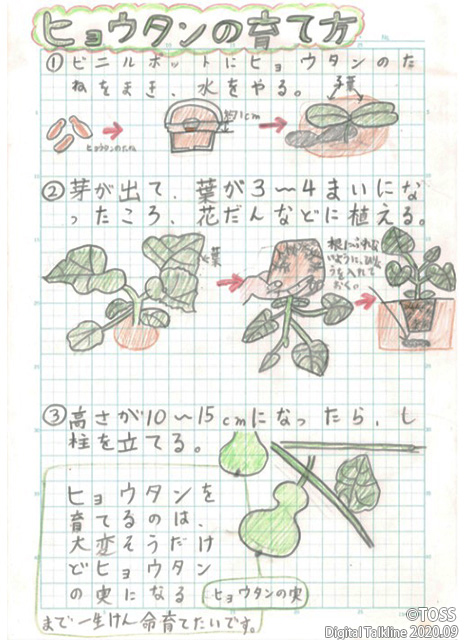 ヒョウタンの育て方
①ビニルポットにヒョウタンのた
ねをまき、水をやる。
子葉
約1cm
ヒョウタンのたね
②芽が出て、葉が3〜4まいにな
ったころ、花だんなどに植える。
葉
うを入れて
おく。
③高さが10〜15cmになったら、し
柱を立てる。
ヒョウタンを
育てるのは、
大変そうだけ
どヒョウタン
の実になる
まで一生けん命育てたいです。
ヒョウタンの実
©TOSS
Digital Talkline 2020.09